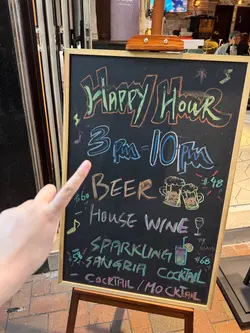 HAPPY HOUR
3pm-10pm
BEER $48
HOUSE WINE
SPARKLING $68
SANGRIA COCKTAIL
COCKTAIL / MOCKTAIL